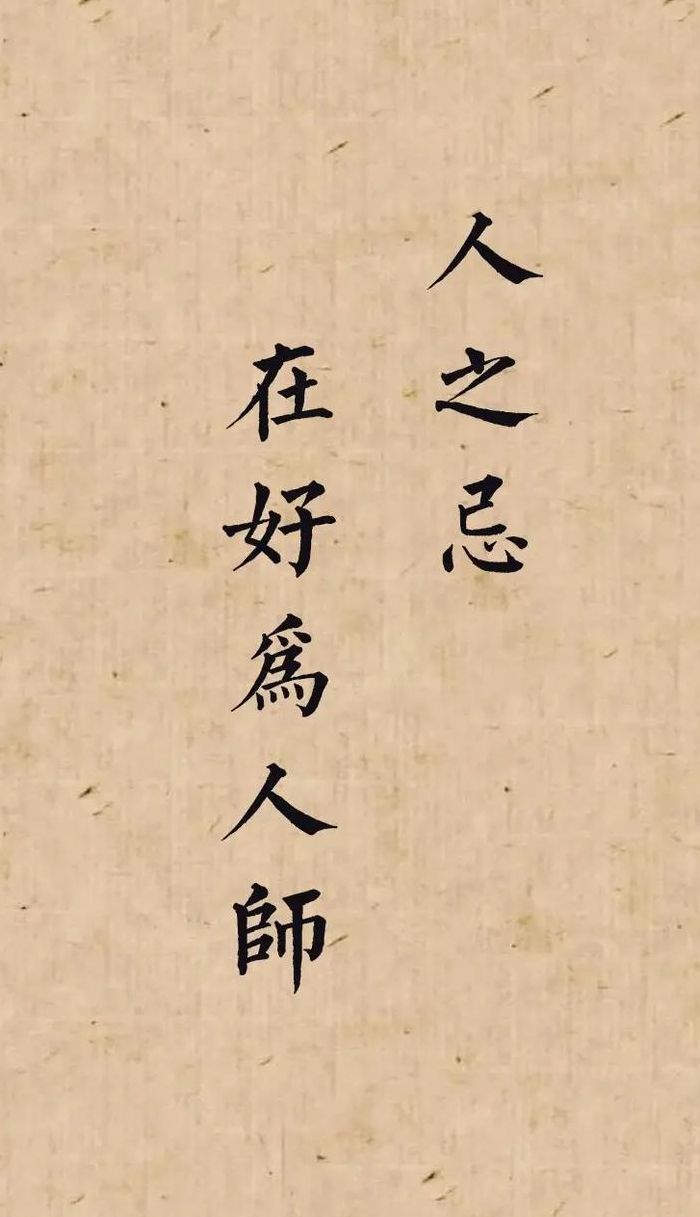 人之忌
在好為人師